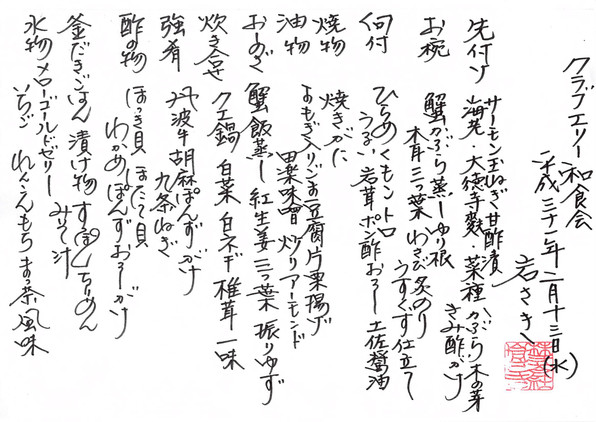 クラブエリー和食会
平成三十一年二月十三日(水)
岩さき
先付 サーモン玉ねぎ甘酢漬
海老・大徳寺麩・菜種 かぶら 木の芽
きみ酢かけ
お椀 蟹かぶら蒸し ゆり根
木耳 三つ葉 わさび 炙のり
うすくず仕立て
向付 ひらめ くもん トロ
うるい 岩茸 ポン酢おろし 土佐醤油
焼物 焼きがに
油物 よもぎ入りごま豆腐片栗揚げ
田楽味噌 炒りアーモンド
おしのぎ 蟹飯蒸し 紅生姜 三つ葉 振りゆず
炊き合せ クエ鍋 白菜 白ネギ 椎茸 一味
強肴 丹波牛胡麻ぽんずがけ
九条ねぎ
酢の物 ほっき貝 ほたて貝
わかめ ぽんずおろしがけ
釜だきごはん 漬け物 すっぽんちりめん
みそ汁
水物 メローゴールドゼリー
いちご れんこんもち まっ茶風味